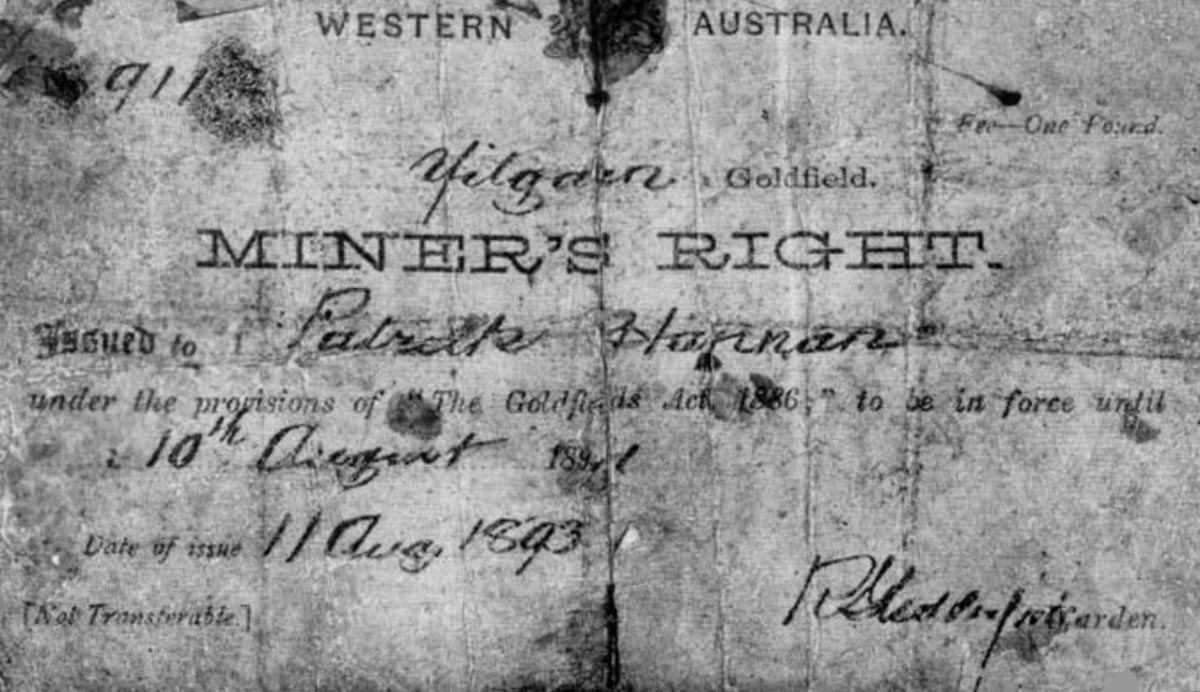 WESTERN AUSTRALIA.
911
Fee—One Pound.
Yilgarn Goldfield.
MINER'S RIGHT.
Issued to Patrick Hannan
under the provisions of "The Goldfields Act, 1886," to be in force until
10th August 189
Date of issue 11 Aug. 1893
[Not Transferable.]
Warden.